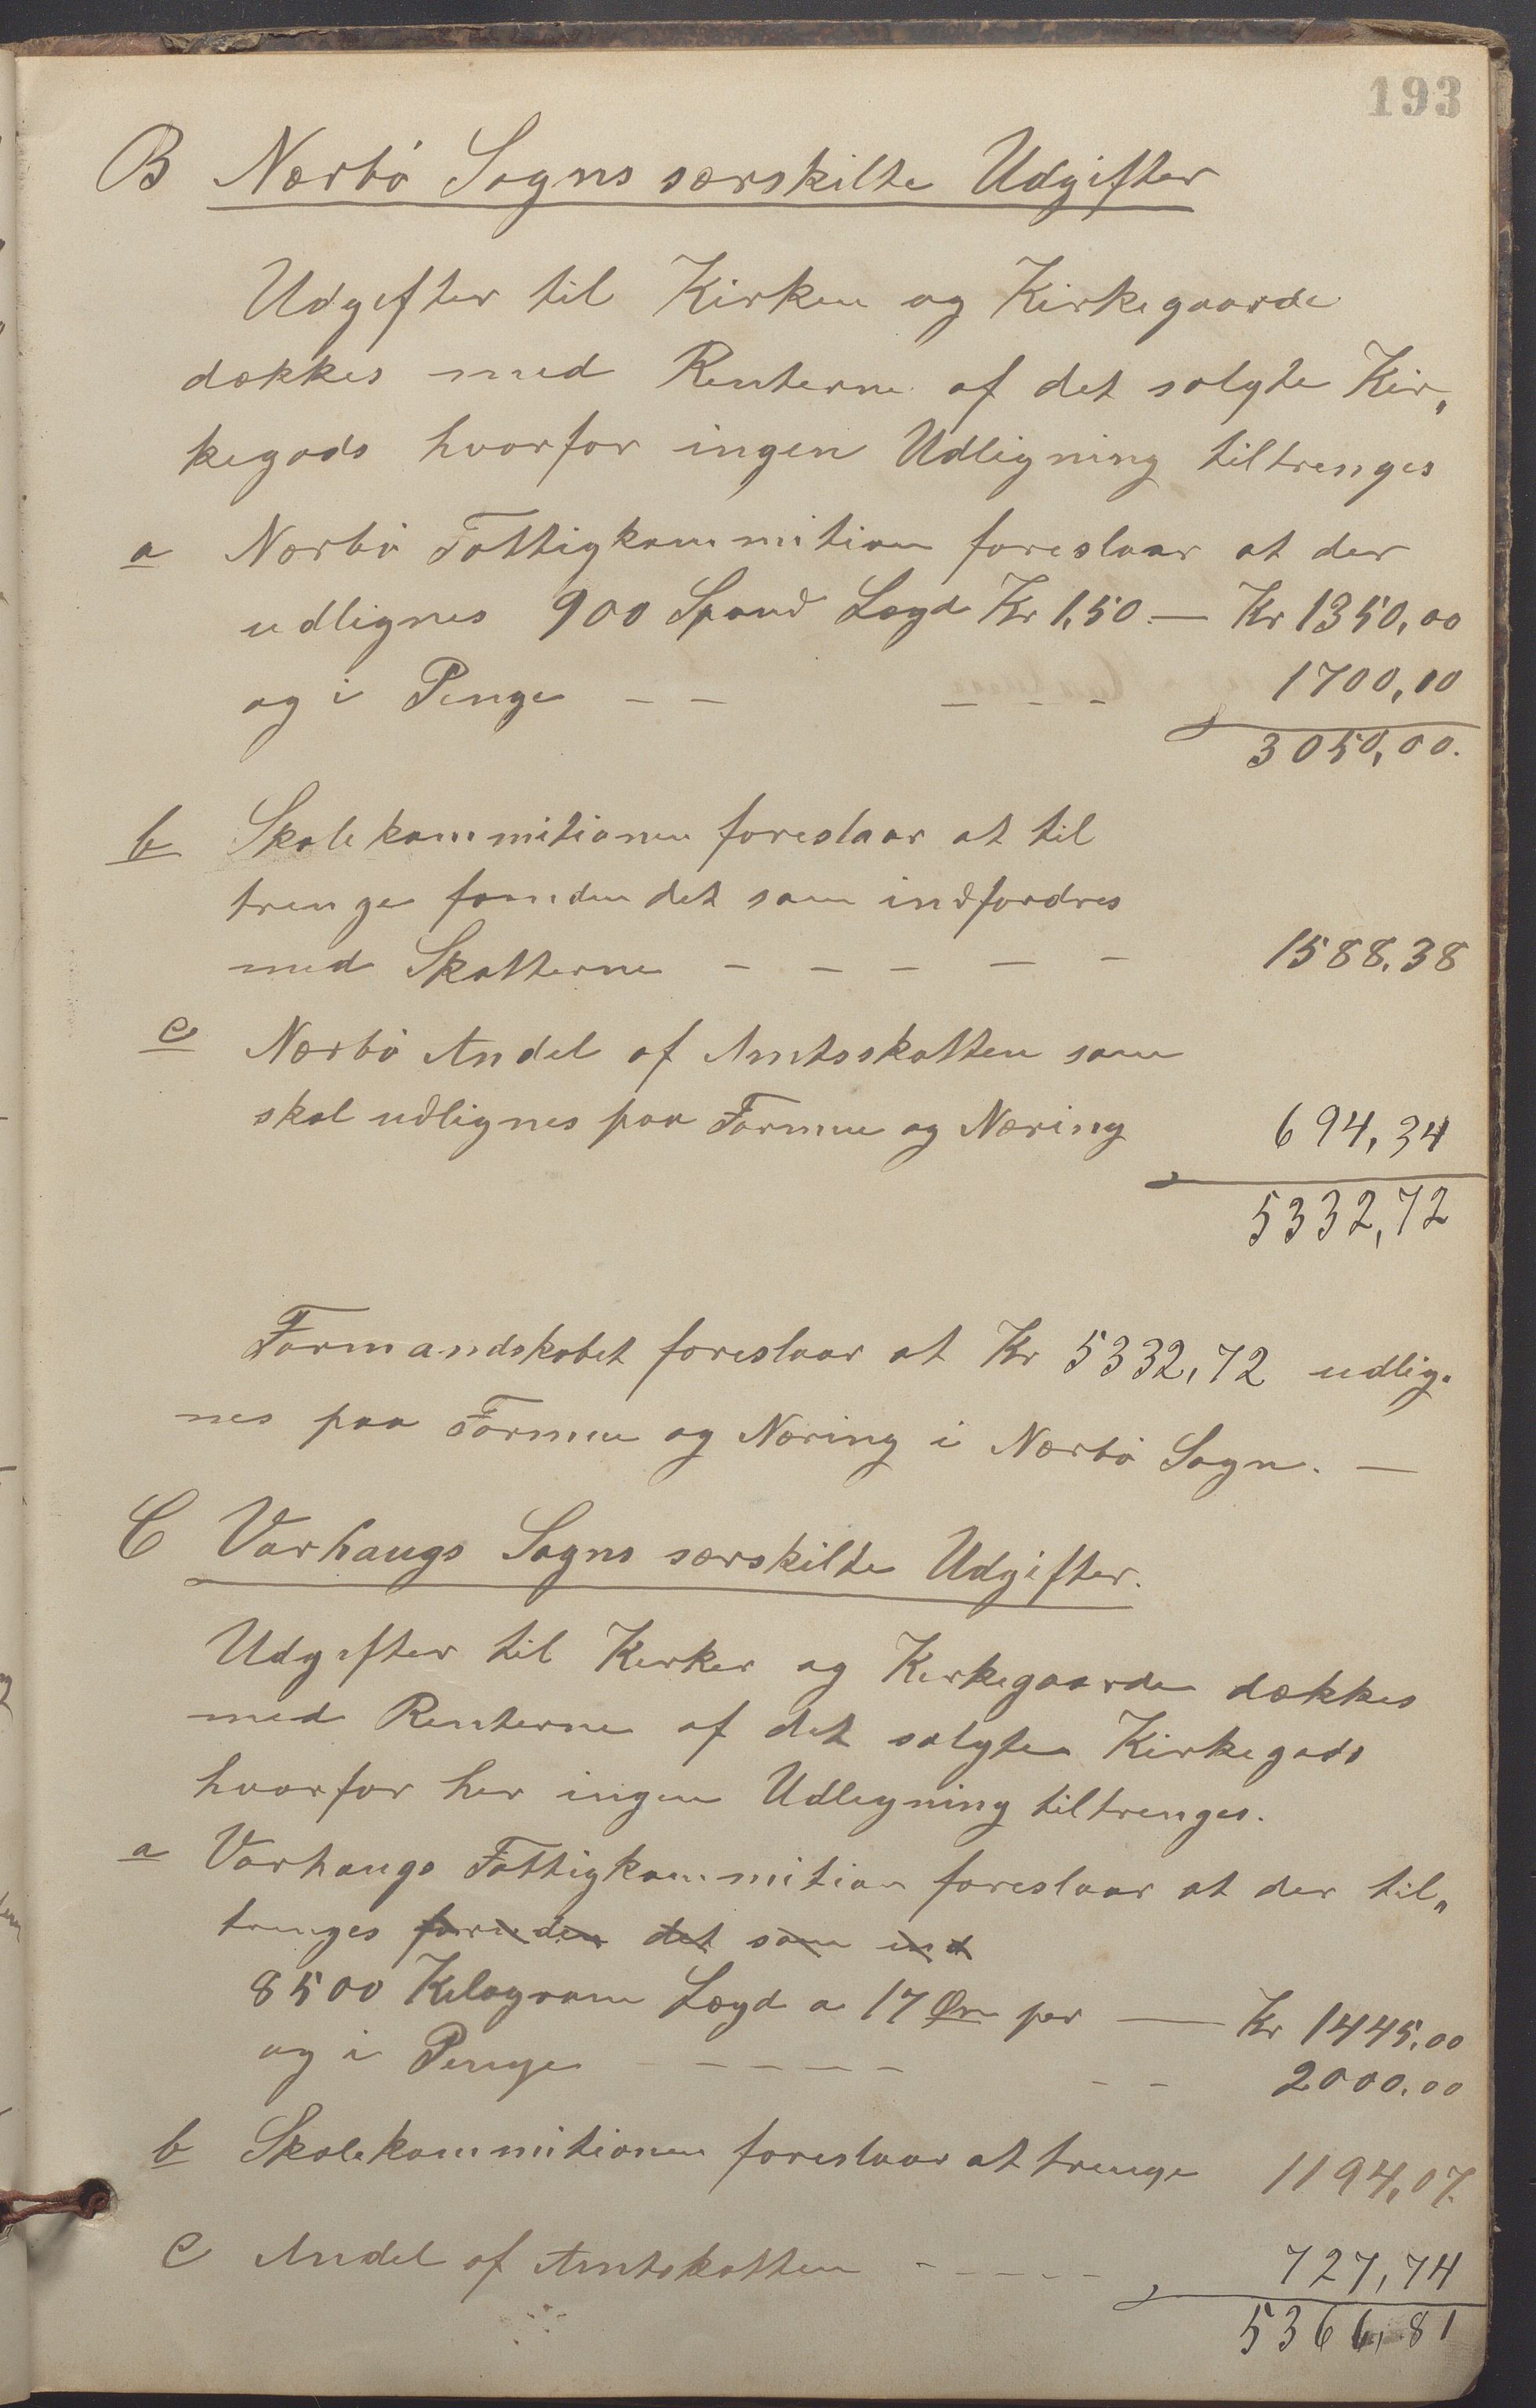 193
B Nærbö Sogns særskilte Udgifter
Udgifter til Kirken og Kirkegaarde
dækkes med Renterne af det solgte Kir„
kegods hvorfor ingen Udligning tiltrenges
a Nærbö Fattigkommition foreslaar at der
udlignes 900 Spand Lægd Kr 1,50 — Kr 1350,00
og i Penge – – – – – 1700,00
3050,00.
b Skolekommitionen foreslaar at til
trenge foruden det som indfordres
med Skatterne – – – – – 1588.38
c Nærbö Andel af Amtsskatten som
skal udlignes paa Formue og Næring 694,34
5332,72
Formandskabet foreslaar at Kr 5332,72 udlig.
nes paa Formue og Næring i Nærbö Sogn. —
C Varhaugs Sogns særskilte Udgifter.
Udgifter til Kirker og Kirkegaarde dækkes
med Renterne af det solgte Kirkegods
hvorfor her ingen Udligning tiltrenges.
a Varhaugs Fattigkommition foreslaar at der til„
trenges foruden det som ind
8500 Kilogram Lægd a 17 Øre per — Kr 1445.00
og i Penge – – – – – – – 2000.00
b Skolekommitionen foreslaar at trenge 1194,07.
c Andel af Amtskatten – – – – – 727,74
5366,81